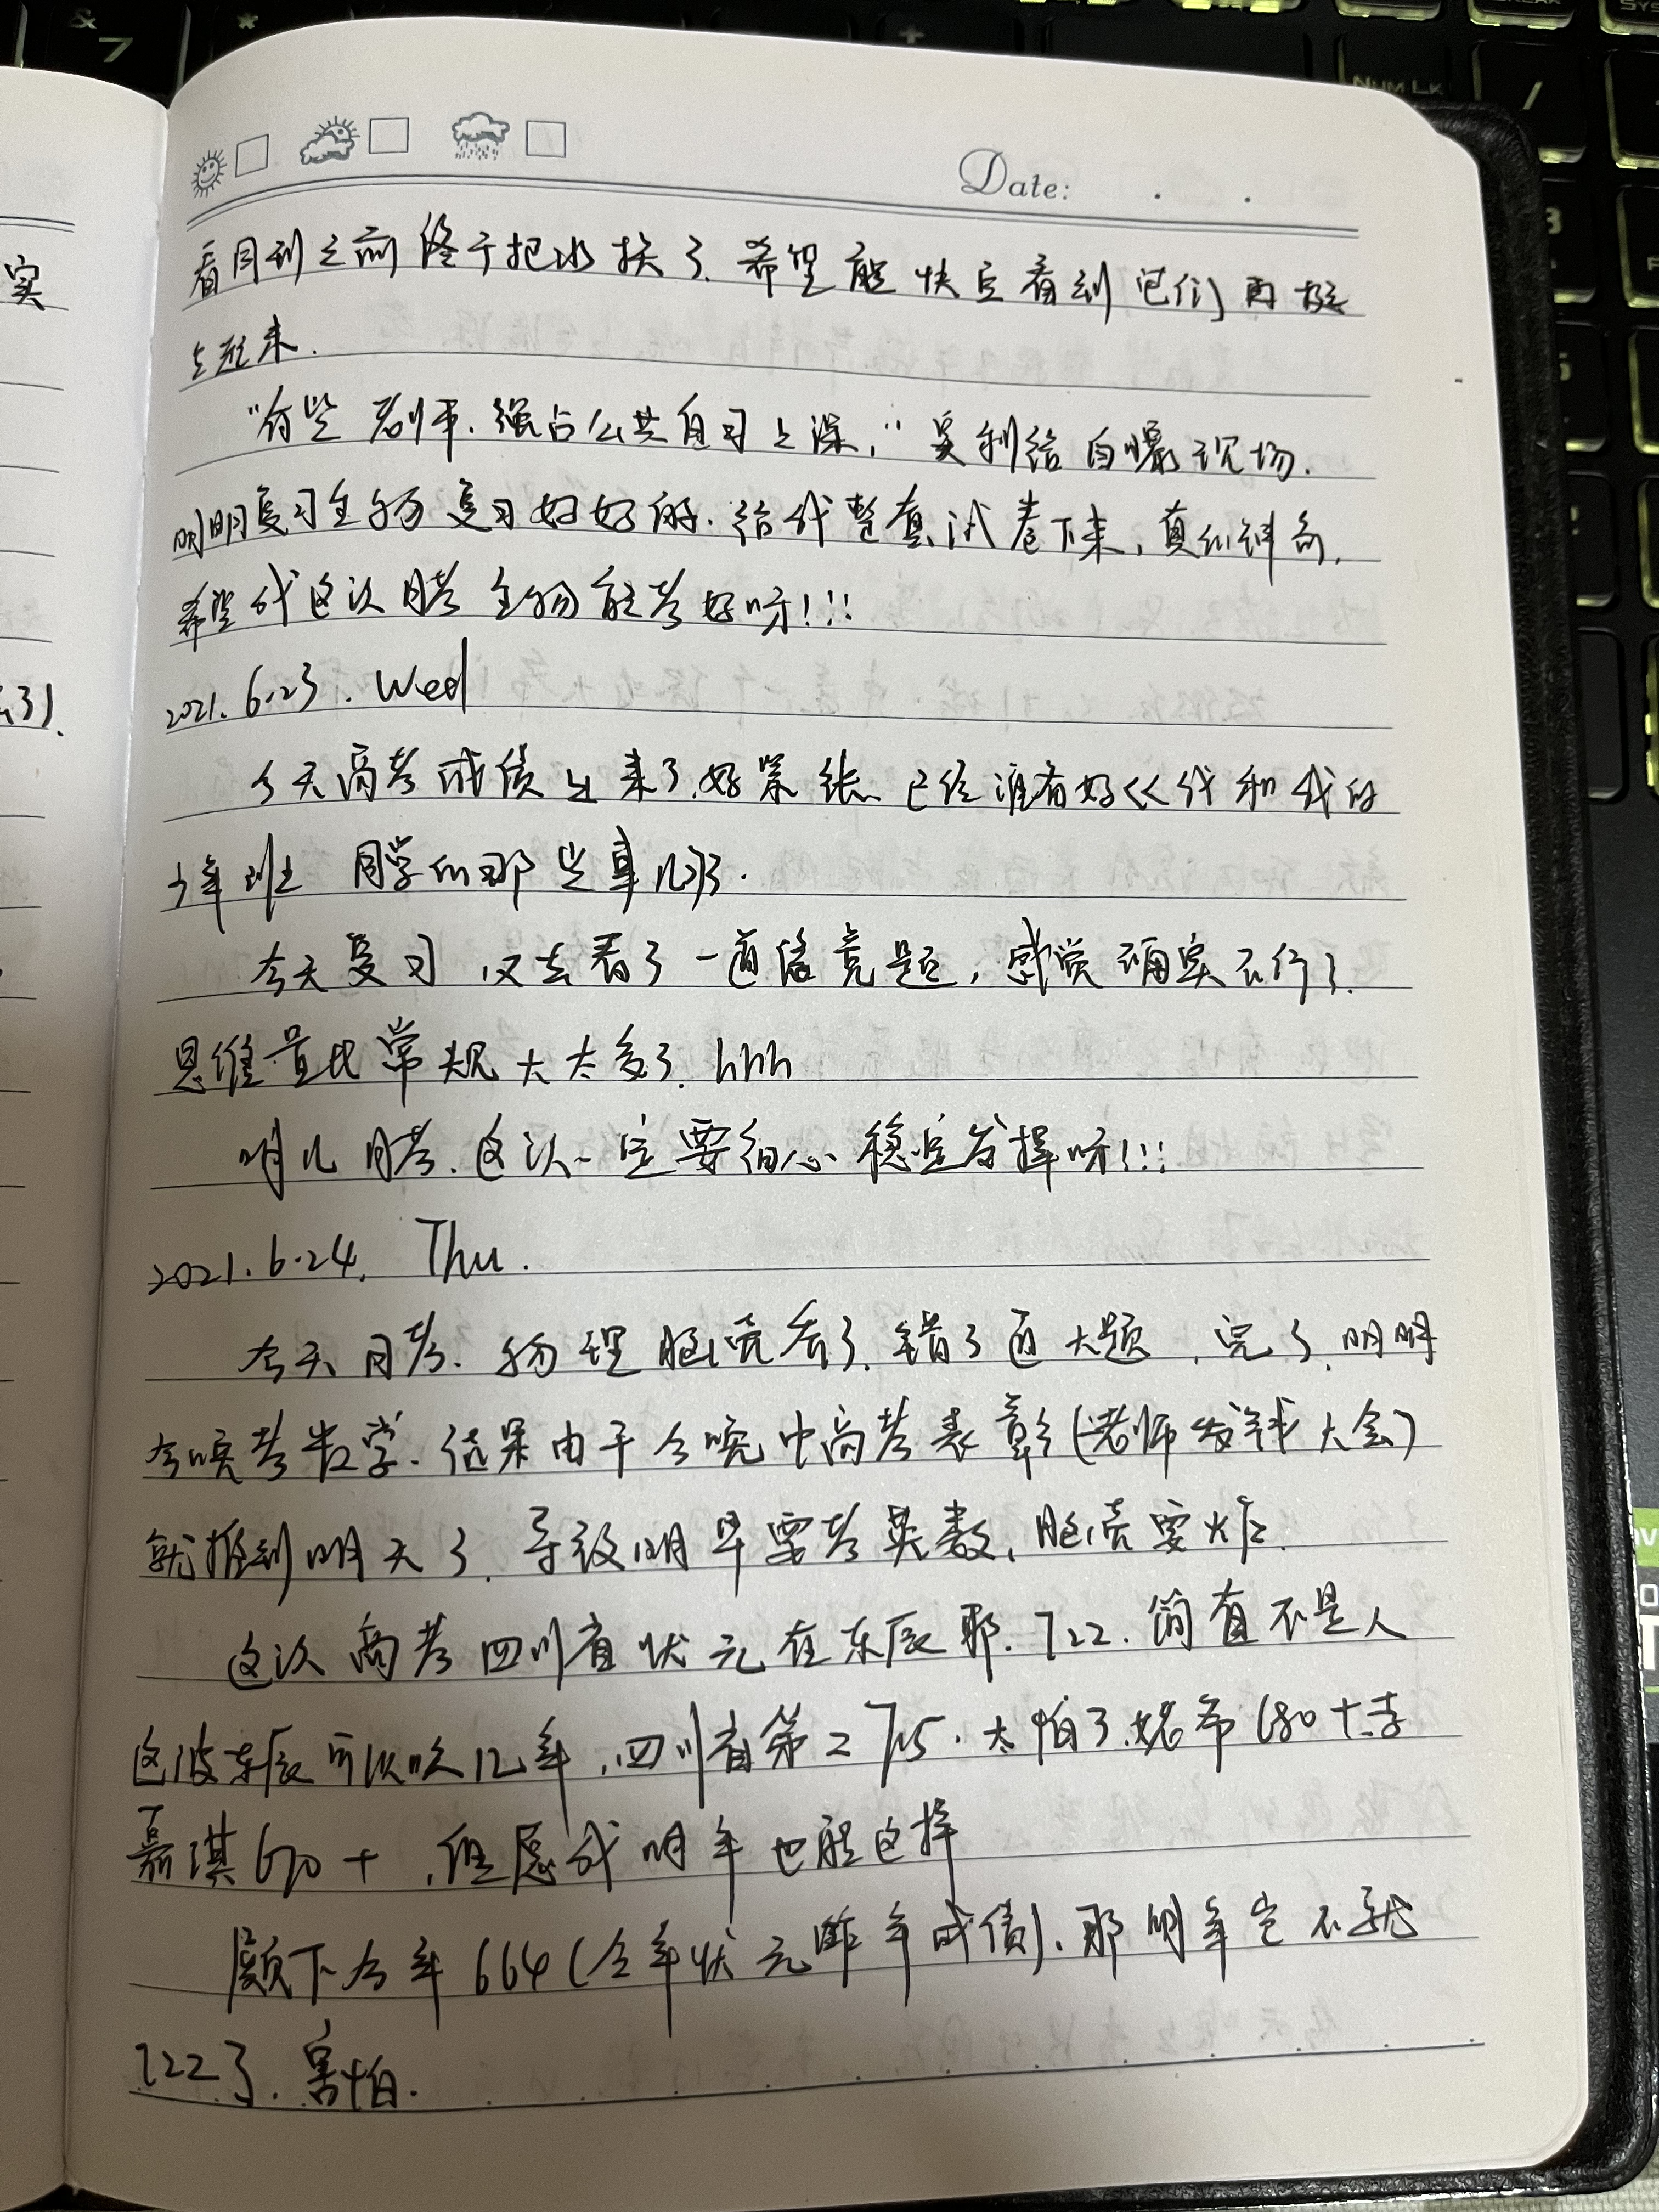 Date:
看同到之前终于把水换了.希望能快点看到它们再挺
起来.
"有些老师.强占公共自习上课," 吴利给自爆现场.
明明复习生物复习好好的.给我整套试卷下来,真
希望我这次月考生物能考好呀!!!
2021.6.23.Wed
今天高考成绩出来了.好紧张 已经没有好久我和我的
少年班同学的那些事儿了.
今天复习,又去看了一道信竞题,感觉确实不行了.
思维量比常规大太多了.hhh
明儿月考.这次一定要细心 稳定发挥呀!!!
2021.6.24. Thu.
今天月考.物理脑壳看了.错了道大题,完了.明明
今晚考数学.结果由于今晚中高考表彰(老师发钱大会)
就推到明天了.导致明早要考英数,脑壳要炸.
这次高考四川省状元在东辰耶.722.简直不是人
这波东辰可以吹几年,四川省第二715.太怕了.姥爷680+.李
嘉琪670+,但愿我明年也能这样
颜下今年664(今年状元昨年成绩).那明年岂不就
722了.害怕.
实
NUM LK
7
&
*
+
/